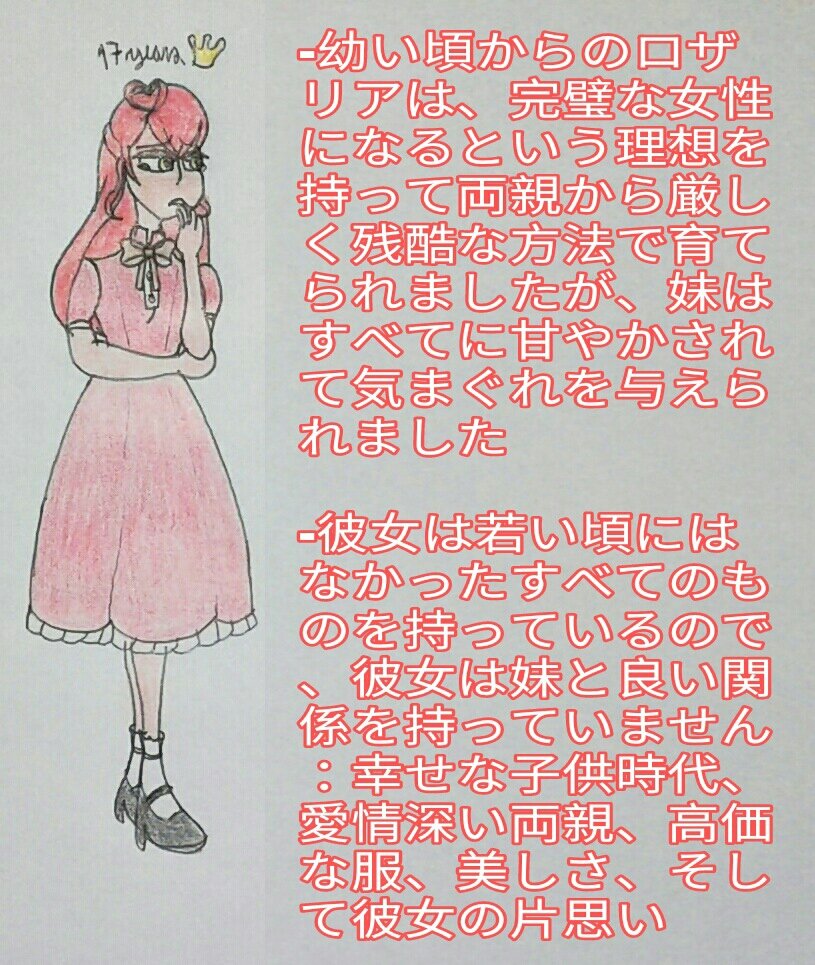 17 years
-幼い頃からのロザ
リアは、完璧な女性
になるという理想を
持って両親から厳し
く残酷な方法で育て
られましたが、妹は
すべてに甘やかされ
て気まぐれを与えら
れました
-彼女は若い頃には
なかったすべてのも
のを持っているので
、彼女は妹と良い関
係を持っていません
：幸せな子供時代、
愛情深い両親、高価
な服、美しさ、そし
て彼女の片思い